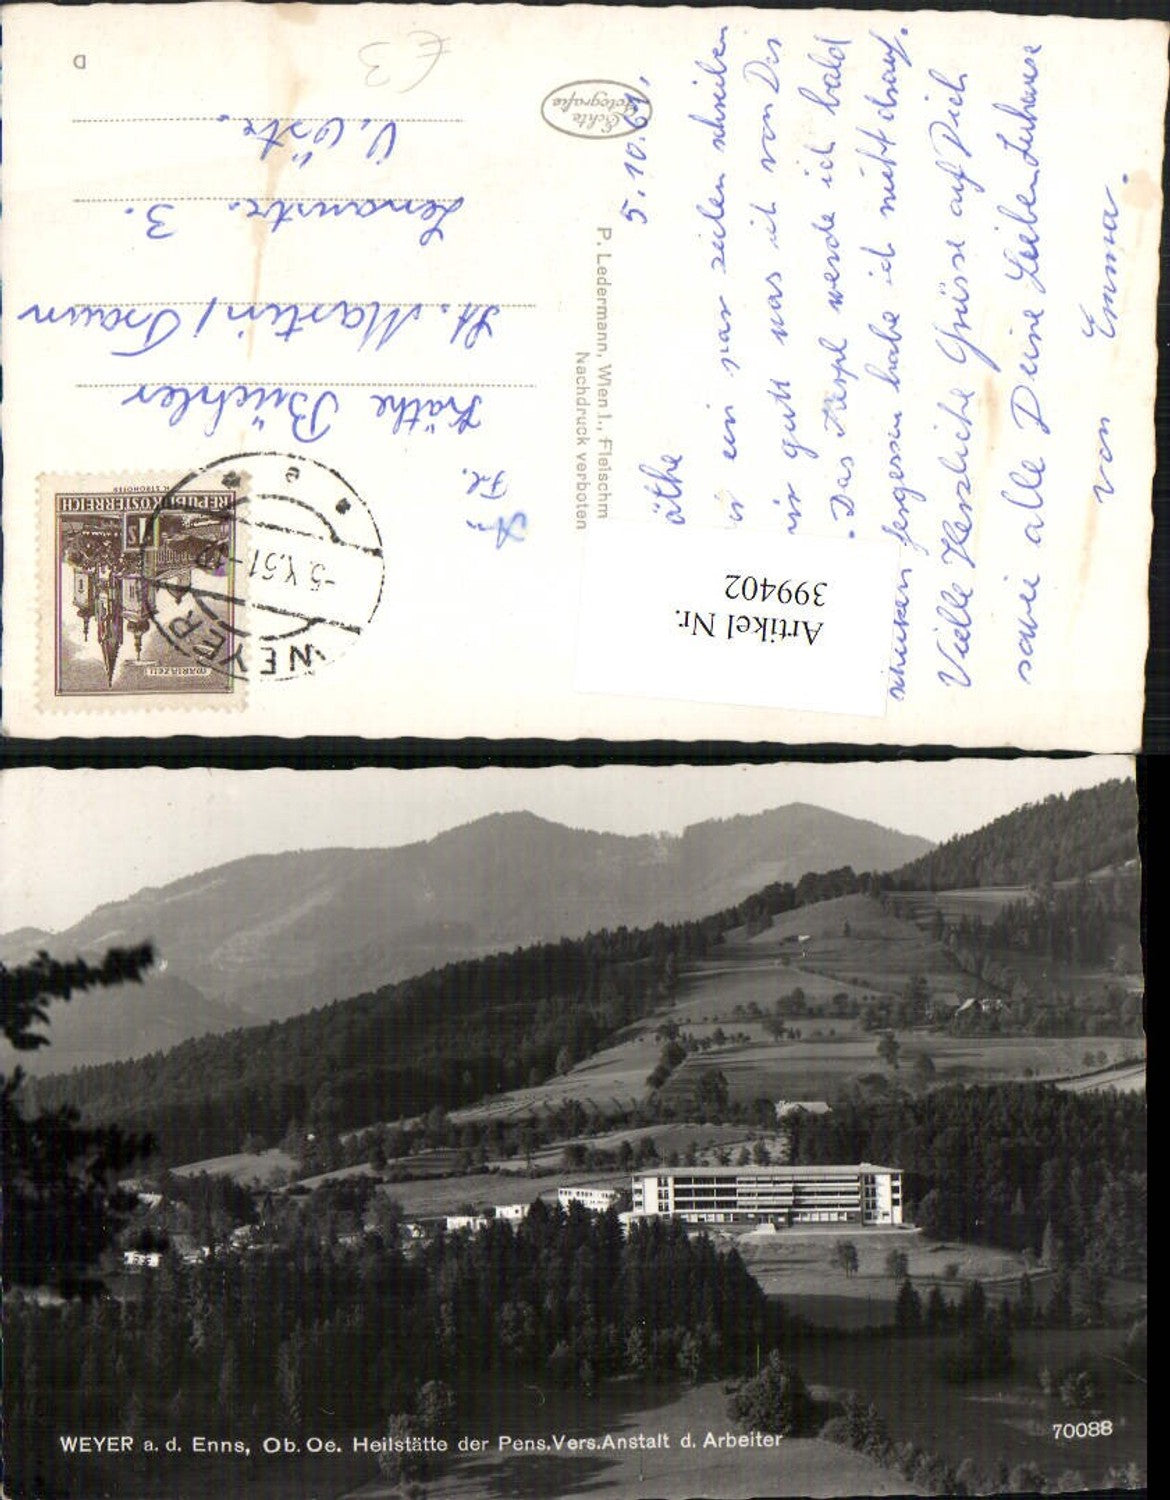 5.10.61.
äthe
ein par zeilen schreiben
gutt was ich von Dir
Das Käspl werde ich bald
schicken fergessen habe ich nicht drauf.
Vielle Herzliche Grüsse auf Dich
sowie alle Deine Lieben Zuhause
von Emma.
Echte
Fotografie
P. Ledermann, Wien I., Fleischm
Nachdruck verboten
Artikel Nr.
399402
An
Frl.
Käthe Büchler
St. Martin / Traun
Lenaustr. 3.
O.Östr.
D
€3
MARIAZELL
1 S
REPUBLIK ÖSTERREICH
WEYER
-5.X.61
WEYER a. d. Enns, Ob. Oe. Heilstätte der Pens.Vers.Anstalt d. Arbeiter
70088